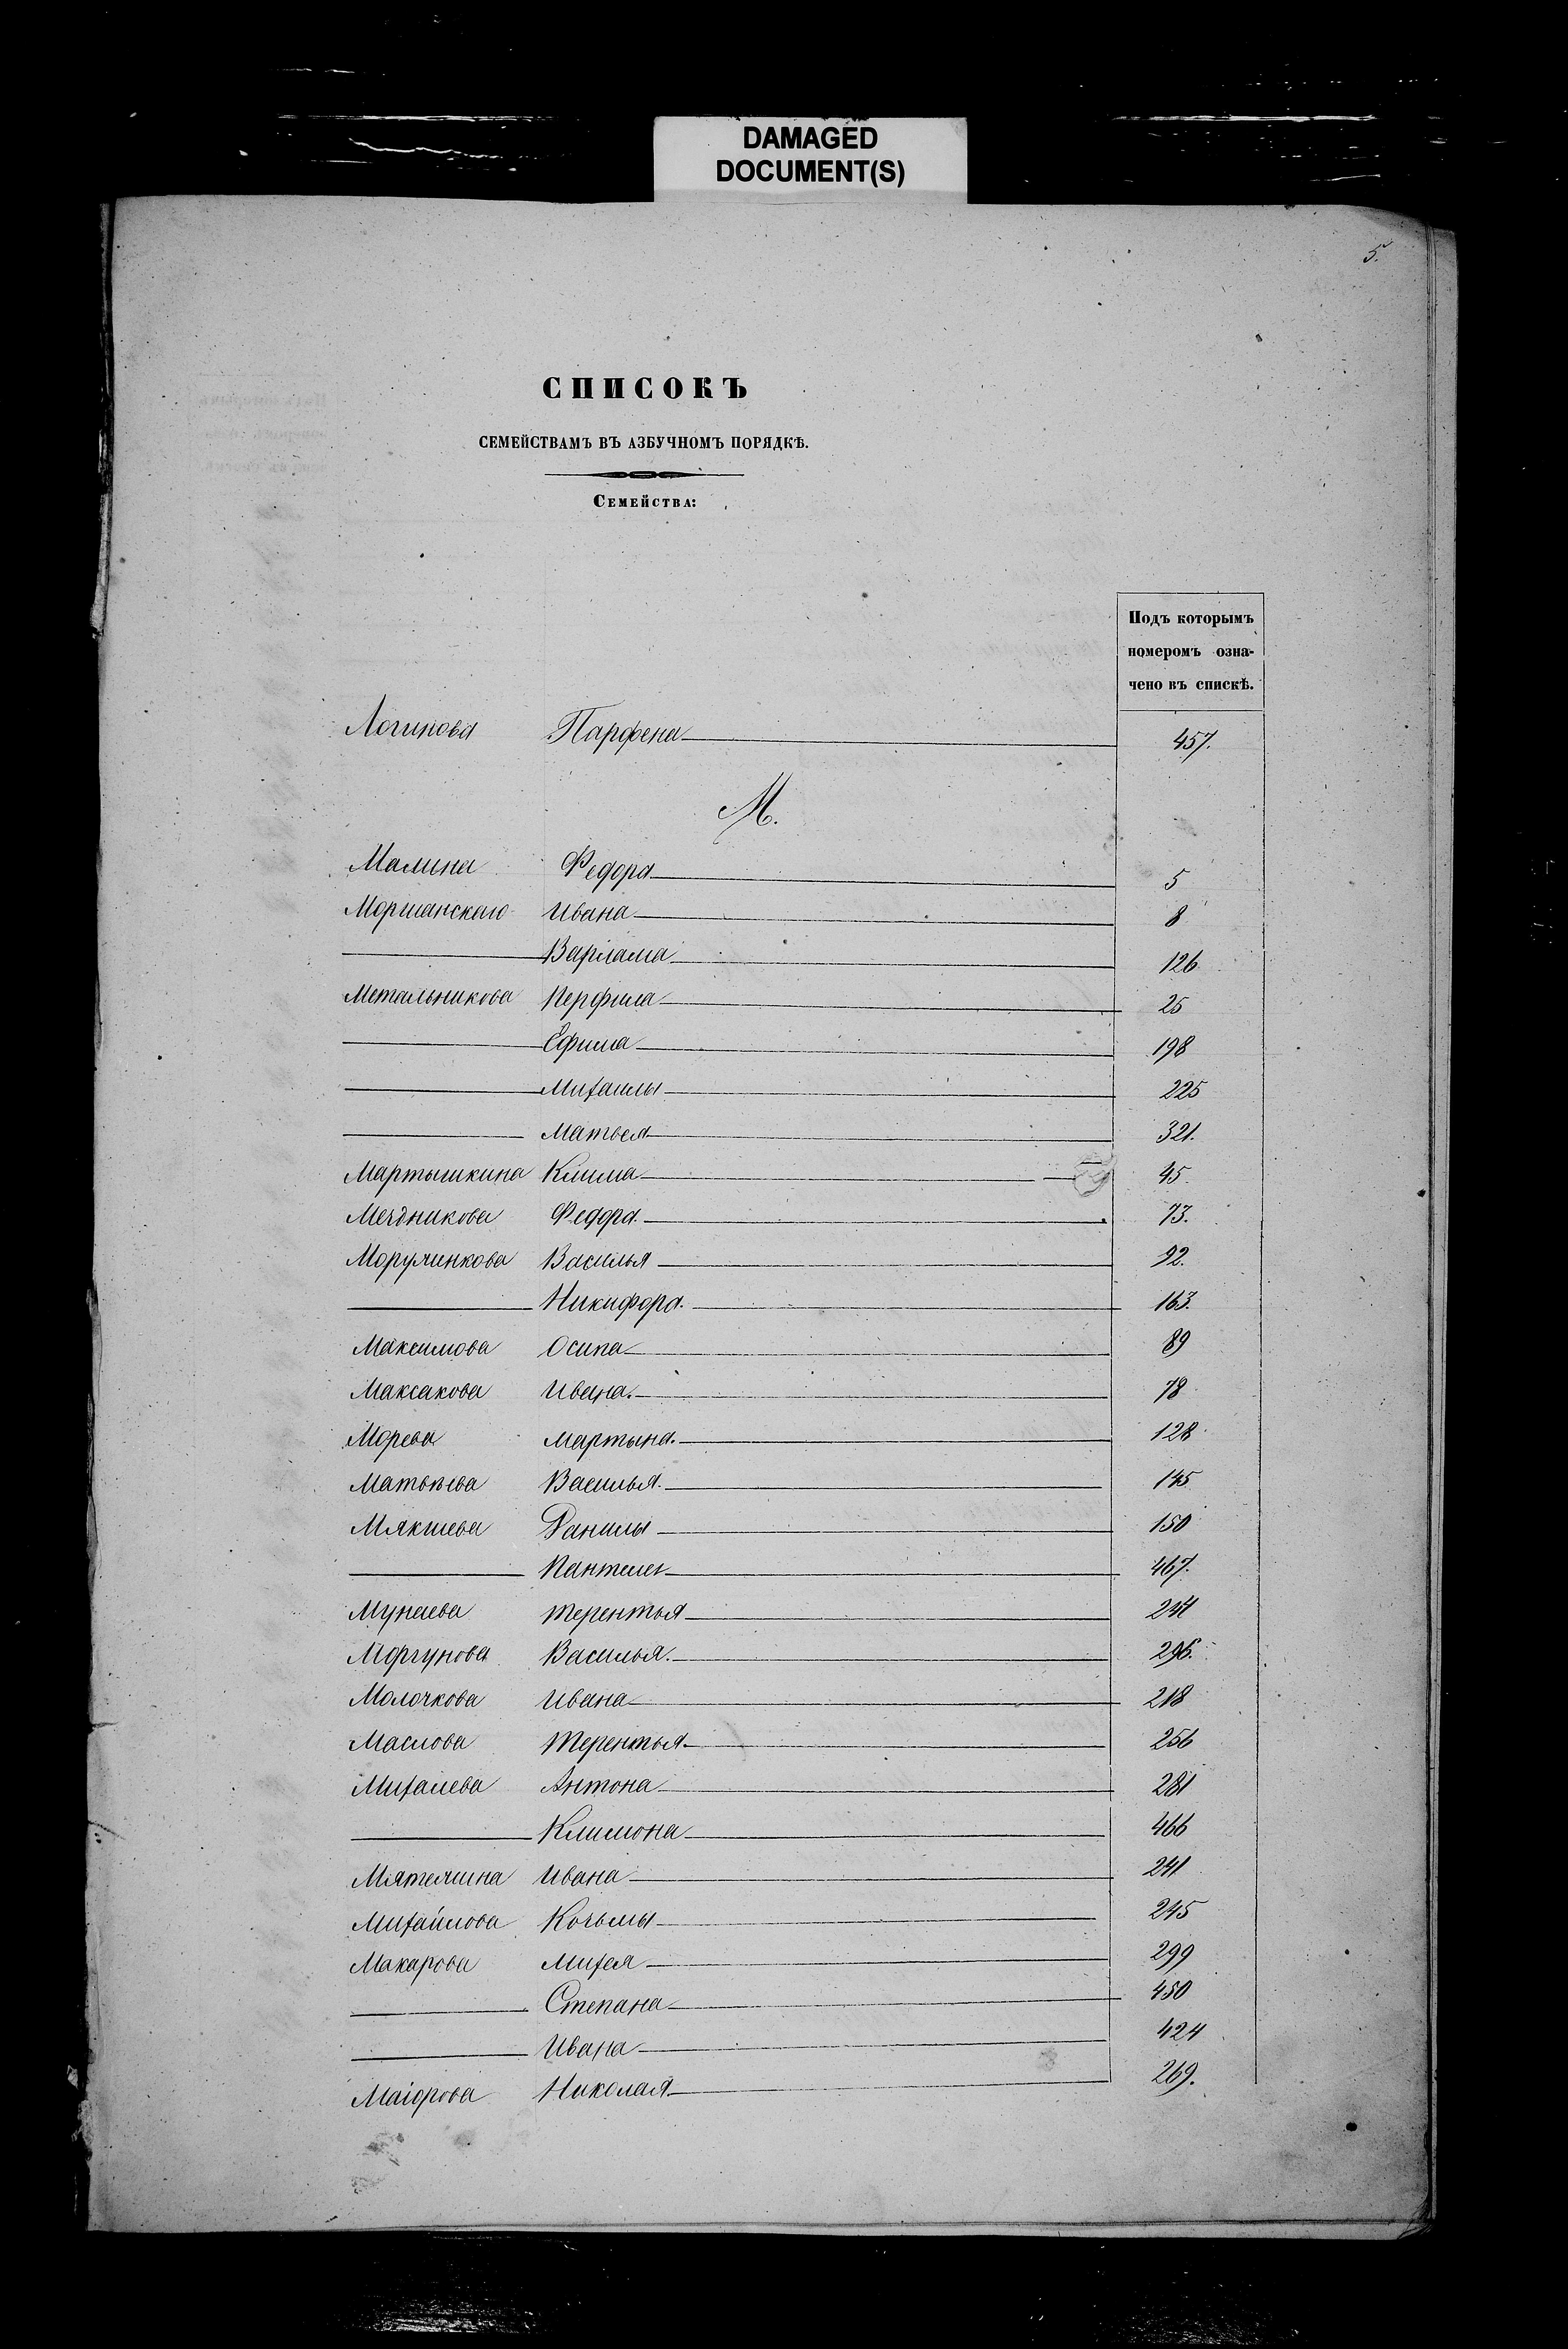 DAMAGED
DOCUMENT(S)
5.
СПИСОКЪ
СЕМЕЙСТВАМЪ ВЪ АЗБУЧНОМЪ ПОРЯДКѢ.
Семейства:
Подъ которымъ
номеромъ озна-
чено въ спискѣ.
Логинова Парфена 457.
М.
Малина Федора 5
Моршанскаго Ивана 8
Варлама 126
Метальникова Перфила 25
Ефима 198
Михаилы 225
Матвея 321.
Мартышкина Клима 45
Мечникова Федора 73.
Василья 92.
Никифора 163.
Максимова Осипа 89
Максакова Ивана 78
Морева Мартына 128
Матвѣева Василья 145
Мякшева Данилы 150
Пантелея 467.
Мунаева Терентья
Моргунова Василья 296.
Молочкова Ивана 218
Маслова Терентья 256
Михалева Антона 281
Климона 466
Ивана 241
Михайлова Козьмы 245
Макарова Михея 299
Степана 450
Ивана 424
Маіорова Николая 269.